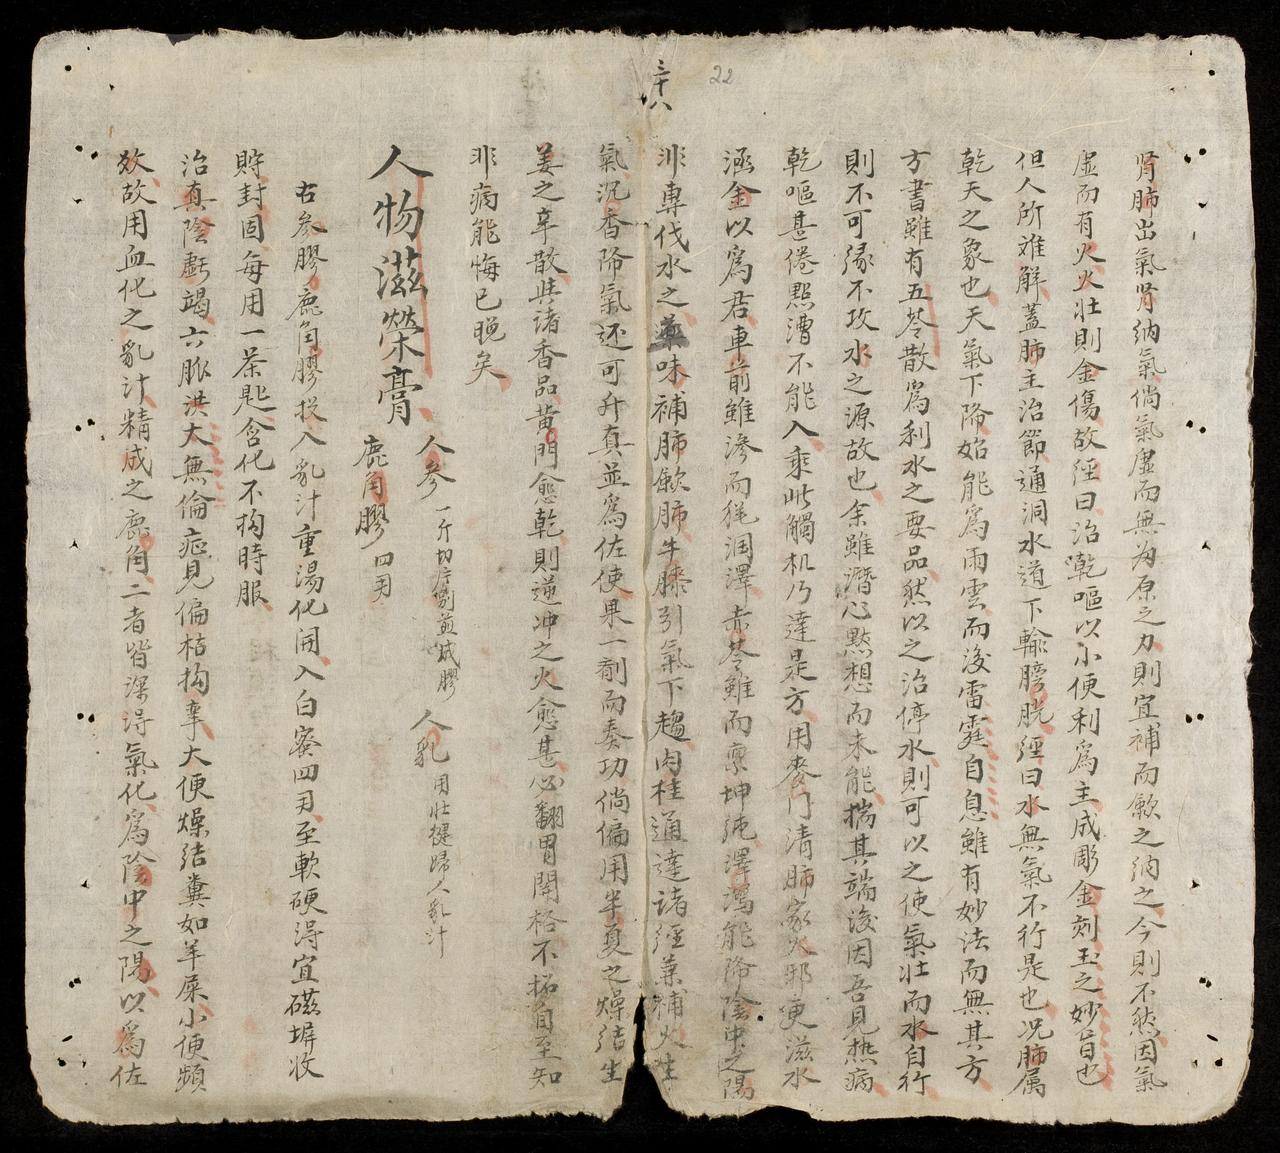 三十八
22
肾肺出氣肾纳氣倘氣虚而無为原之力則宜補而歛之纳之今則不然因氣
虚而有火火壮則金傷故经曰治乾嘔以小便利為主成彫金刻玉之妙旨也
但人所难解蓋肺主治節通洞水道下輸膀胱经曰水無氣不行是也况肺属
乾天之象也天氣下降始能為雨雲而後雷霆自息雖有妙法而無其方
方書雖有五苓散為利水之要品然以之治停水則可以之使氣壮而水自行
則不可缘不攻水之源故也余雖潛心黙想而未能揣其端後因吾見热病
乾嘔甚倦點漕不能入乘此觸机乃達是方用麥门清肺家火邪更滋水
涵金以為君車前雖渗而能润澤赤苓雖而禀坤純澤瀉能降陰中之陽
非專伐水之藥味補肺歛肺牛膝引氣下趨肉桂通達诸经兼補火生
氣沉香降氣还可升真並為佐使果一劑而奏功倘偏用半夏之燥结生
姜之辛散與诸香品黄門愈乾則逆冲之火愈甚必翻胃関格不拓自至知
非病能悔已晚矣
人物滋榮膏
人参 一斤切片劑並成膠
人乳 用壮健婦人乳汁
鹿角膠 四刄
右参膠鹿角膠投入乳汁重湯化開入白蜜四刄至軟硬得宜磁塀收
貯封固每用一茶匙含化不拘時服
治真陰虧竭六脈洪大無倫症見偏枯拘挛大便燥结粪如羊屎小便頻
数故用血化之乳汁精成之鹿角二者皆深得氣化為陰中之陽以為佐